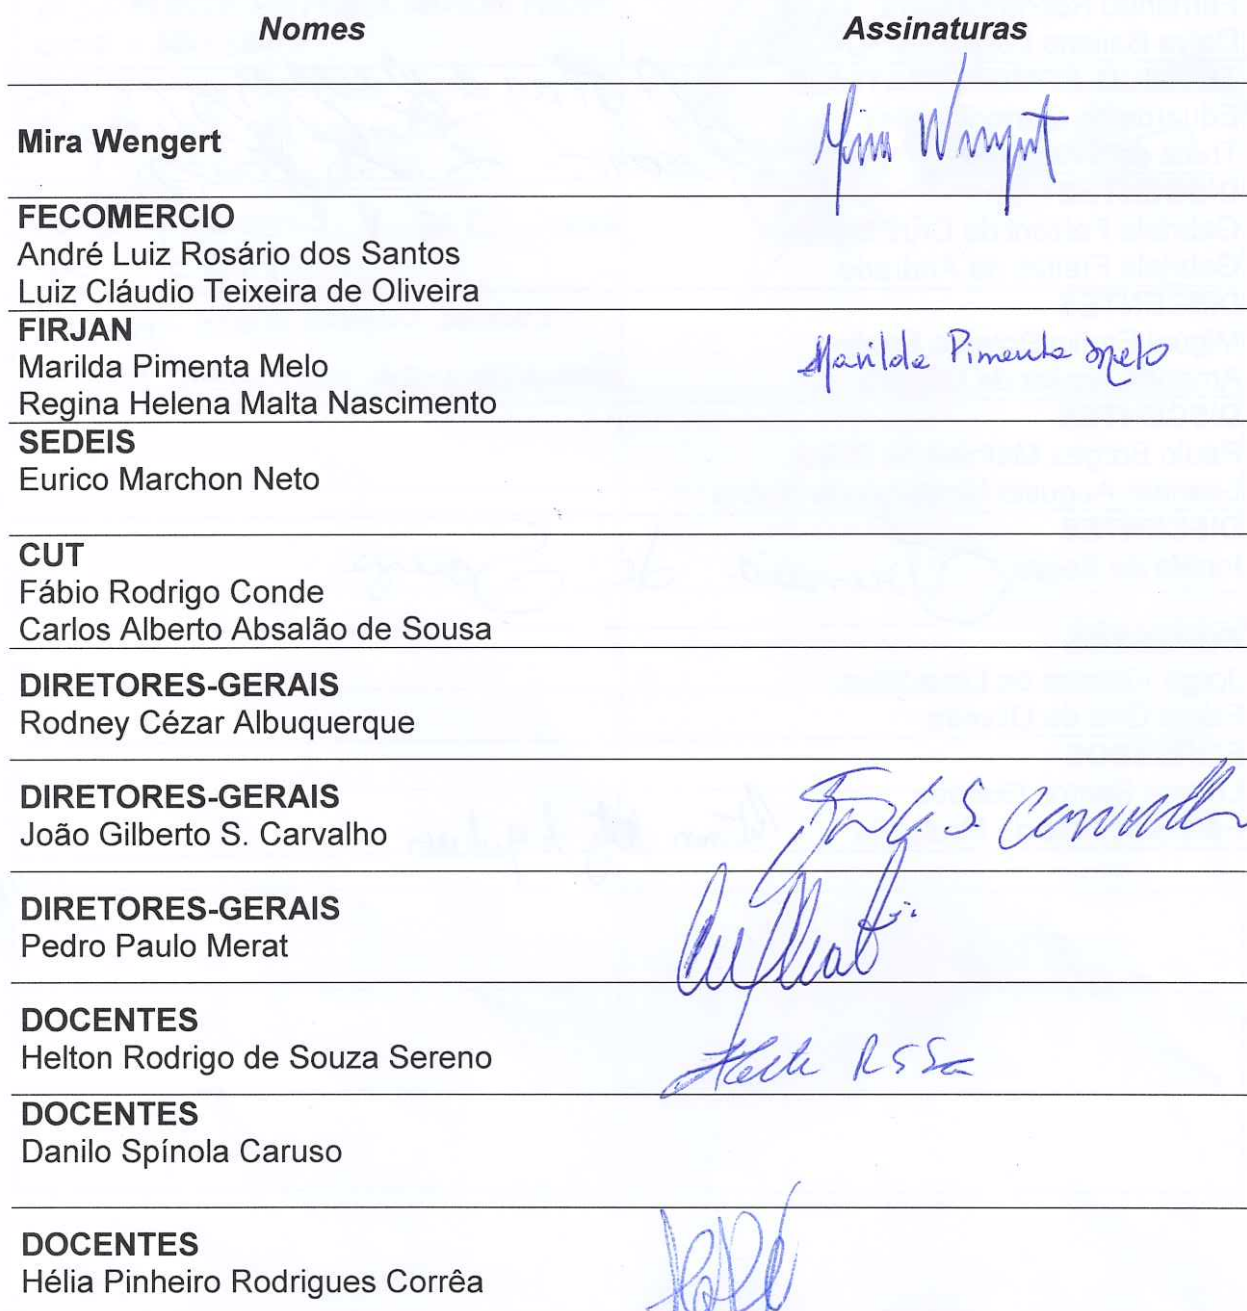 Nomes Assinaturas
Mira Wengert Mira Wengert
FECOMERCIO
André Luiz Rosário dos Santos
Luiz Cláudio Teixeira de Oliveira
FIRJAN
Marilda Pimenta Melo Marilda Pimenta Melo
Regina Helena Malta Nascimento
SEDEIS
Eurico Marchon Neto
CUT
Fábio Rodrigo Conde
Carlos Alberto Absalão de Sousa
DIRETORES-GERAIS
Rodney Cézar Albuquerque
DIRETORES-GERAIS
João Gilberto S. Carvalho S. Carvalho
DIRETORES-GERAIS
Pedro Paulo Merat
DOCENTES
Helton Rodrigo de Souza Sereno
DOCENTES
Danilo Spínola Caruso
DOCENTES
Hélia Pinheiro Rodrigues Corrêa